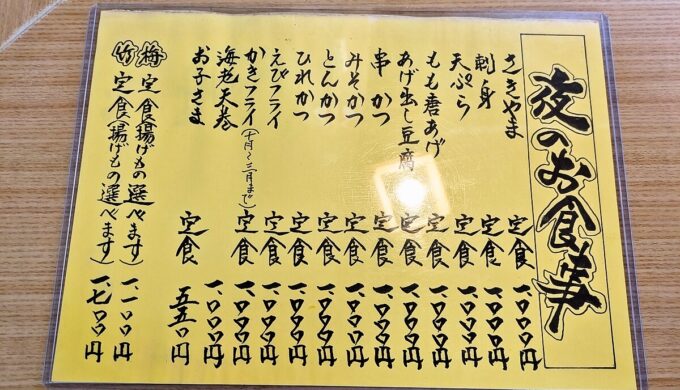 夜のお食事
さきやま 定食 一、〇〇〇円
刺身 定食 一、〇〇〇円
天ぷら 定食 一、〇〇〇円
もも唐あげ 定食 一、〇〇〇円
あげ出し豆腐 定食 一、〇〇〇円
串かつ 定食 一、〇〇〇円
みそかつ 定食 一、〇〇〇円
とんかつ 定食 一、〇〇〇円
ひれかつ 定食 一、〇〇〇円
えびフライ 定食 一、〇〇〇円
かきフライ(十月〜三月まで) 定食 一、〇〇〇円
海老天巻 一、〇〇〇円
お子さま 定食 五五〇円
梅 定食(揚げもの選べます) 一、一〇〇円
竹 定食(揚げもの選べます) 一、七〇〇円